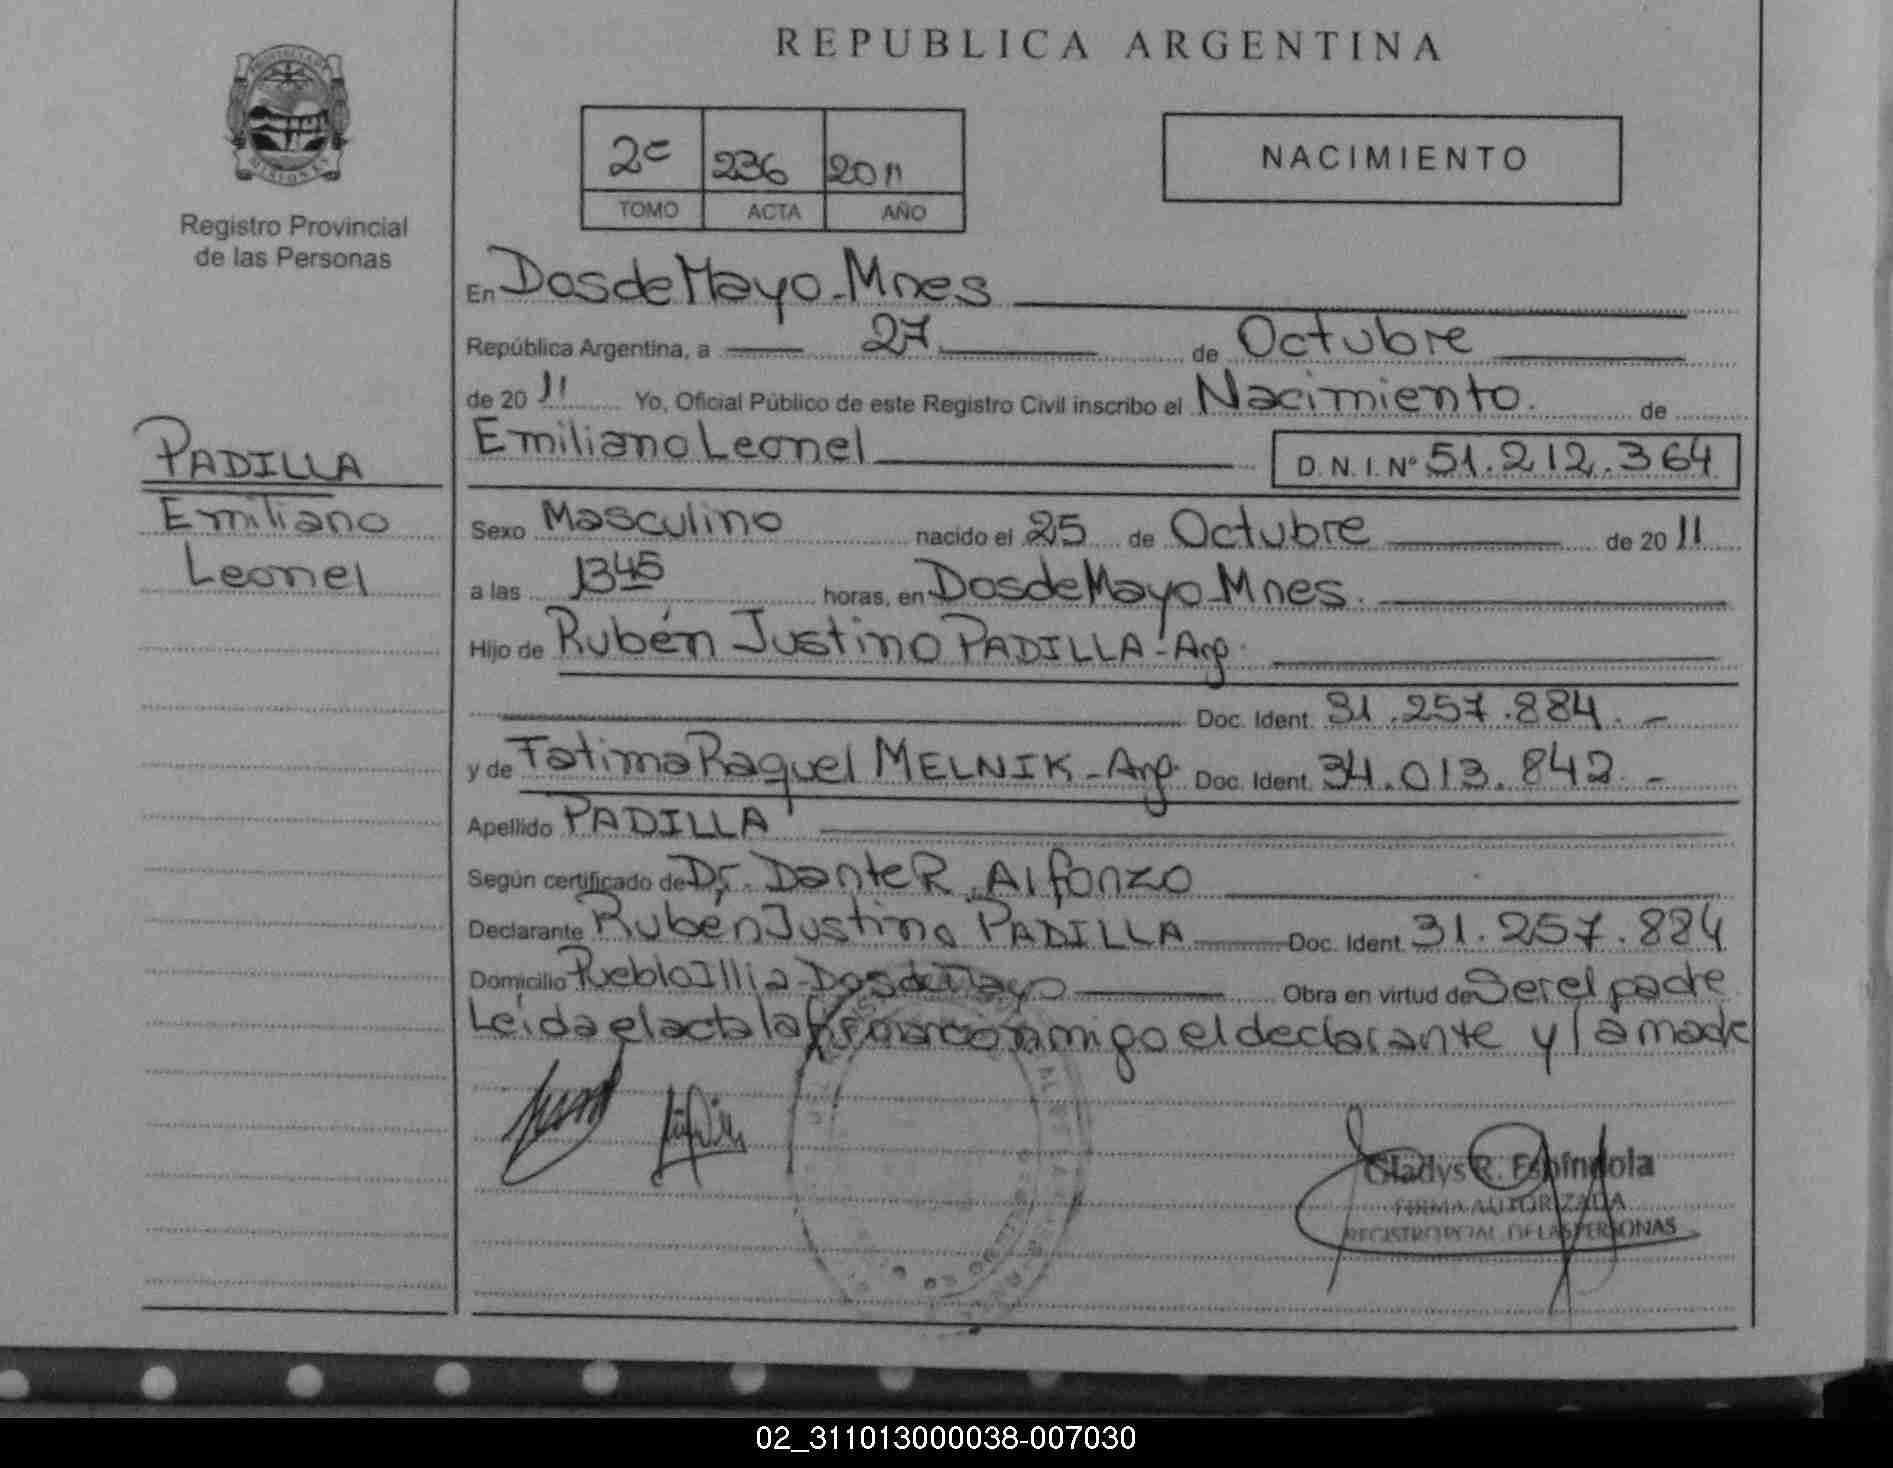 REPUBLICA ARGENTINA
2c 236 2011
TOMO ACTA AÑO
NACIMIENTO
Registro Provincial
de las Personas
En Dos de Mayo - Mnes
República Argentina, a 27 de Octubre
de 20 11 Yo, Oficial Público de este Registro Civil inscribo el Nacimiento. de
Emiliano Leonel D. N. I. N° 51.212.364
PADILLA
Emiliano
Leonel
Sexo Masculino nacido el 25 de Octubre de 20 11
a las 1345 horas, en Dos de Mayo - Mnes.
Hijo de Rubén Justino PADILLA - Arg.
Doc. Ident. 31.257.884.-
y de Fatima Raquel MELNIK - Arg. Doc. Ident. 34.013.842.-
Apellido PADILLA
Según certificado de Dr. Dante R. Alfonzo
Declarante Rubén Justino PADILLA Doc. Ident. 31.257.884
Domicilio Pueblo Illia - Dos de Mayo Obra en virtud de Ser el padre
Leída el acta la firmar conmigo el declarante y la madre
Gladys R. Espíndola
FIRMA AUTORIZADA
REGISTRO PCIAL. DE LAS PERSONAS
02_311013000038-007030